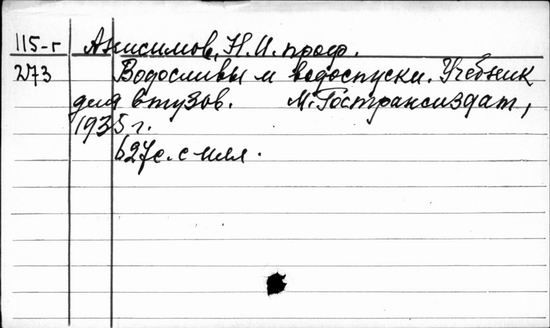 115-г Анисимов, Н.И. проф.
273 Водосливы и водоспуски. Учебник
для втузов. М. Гострансиздат,
1935 г.
627с. с илл.